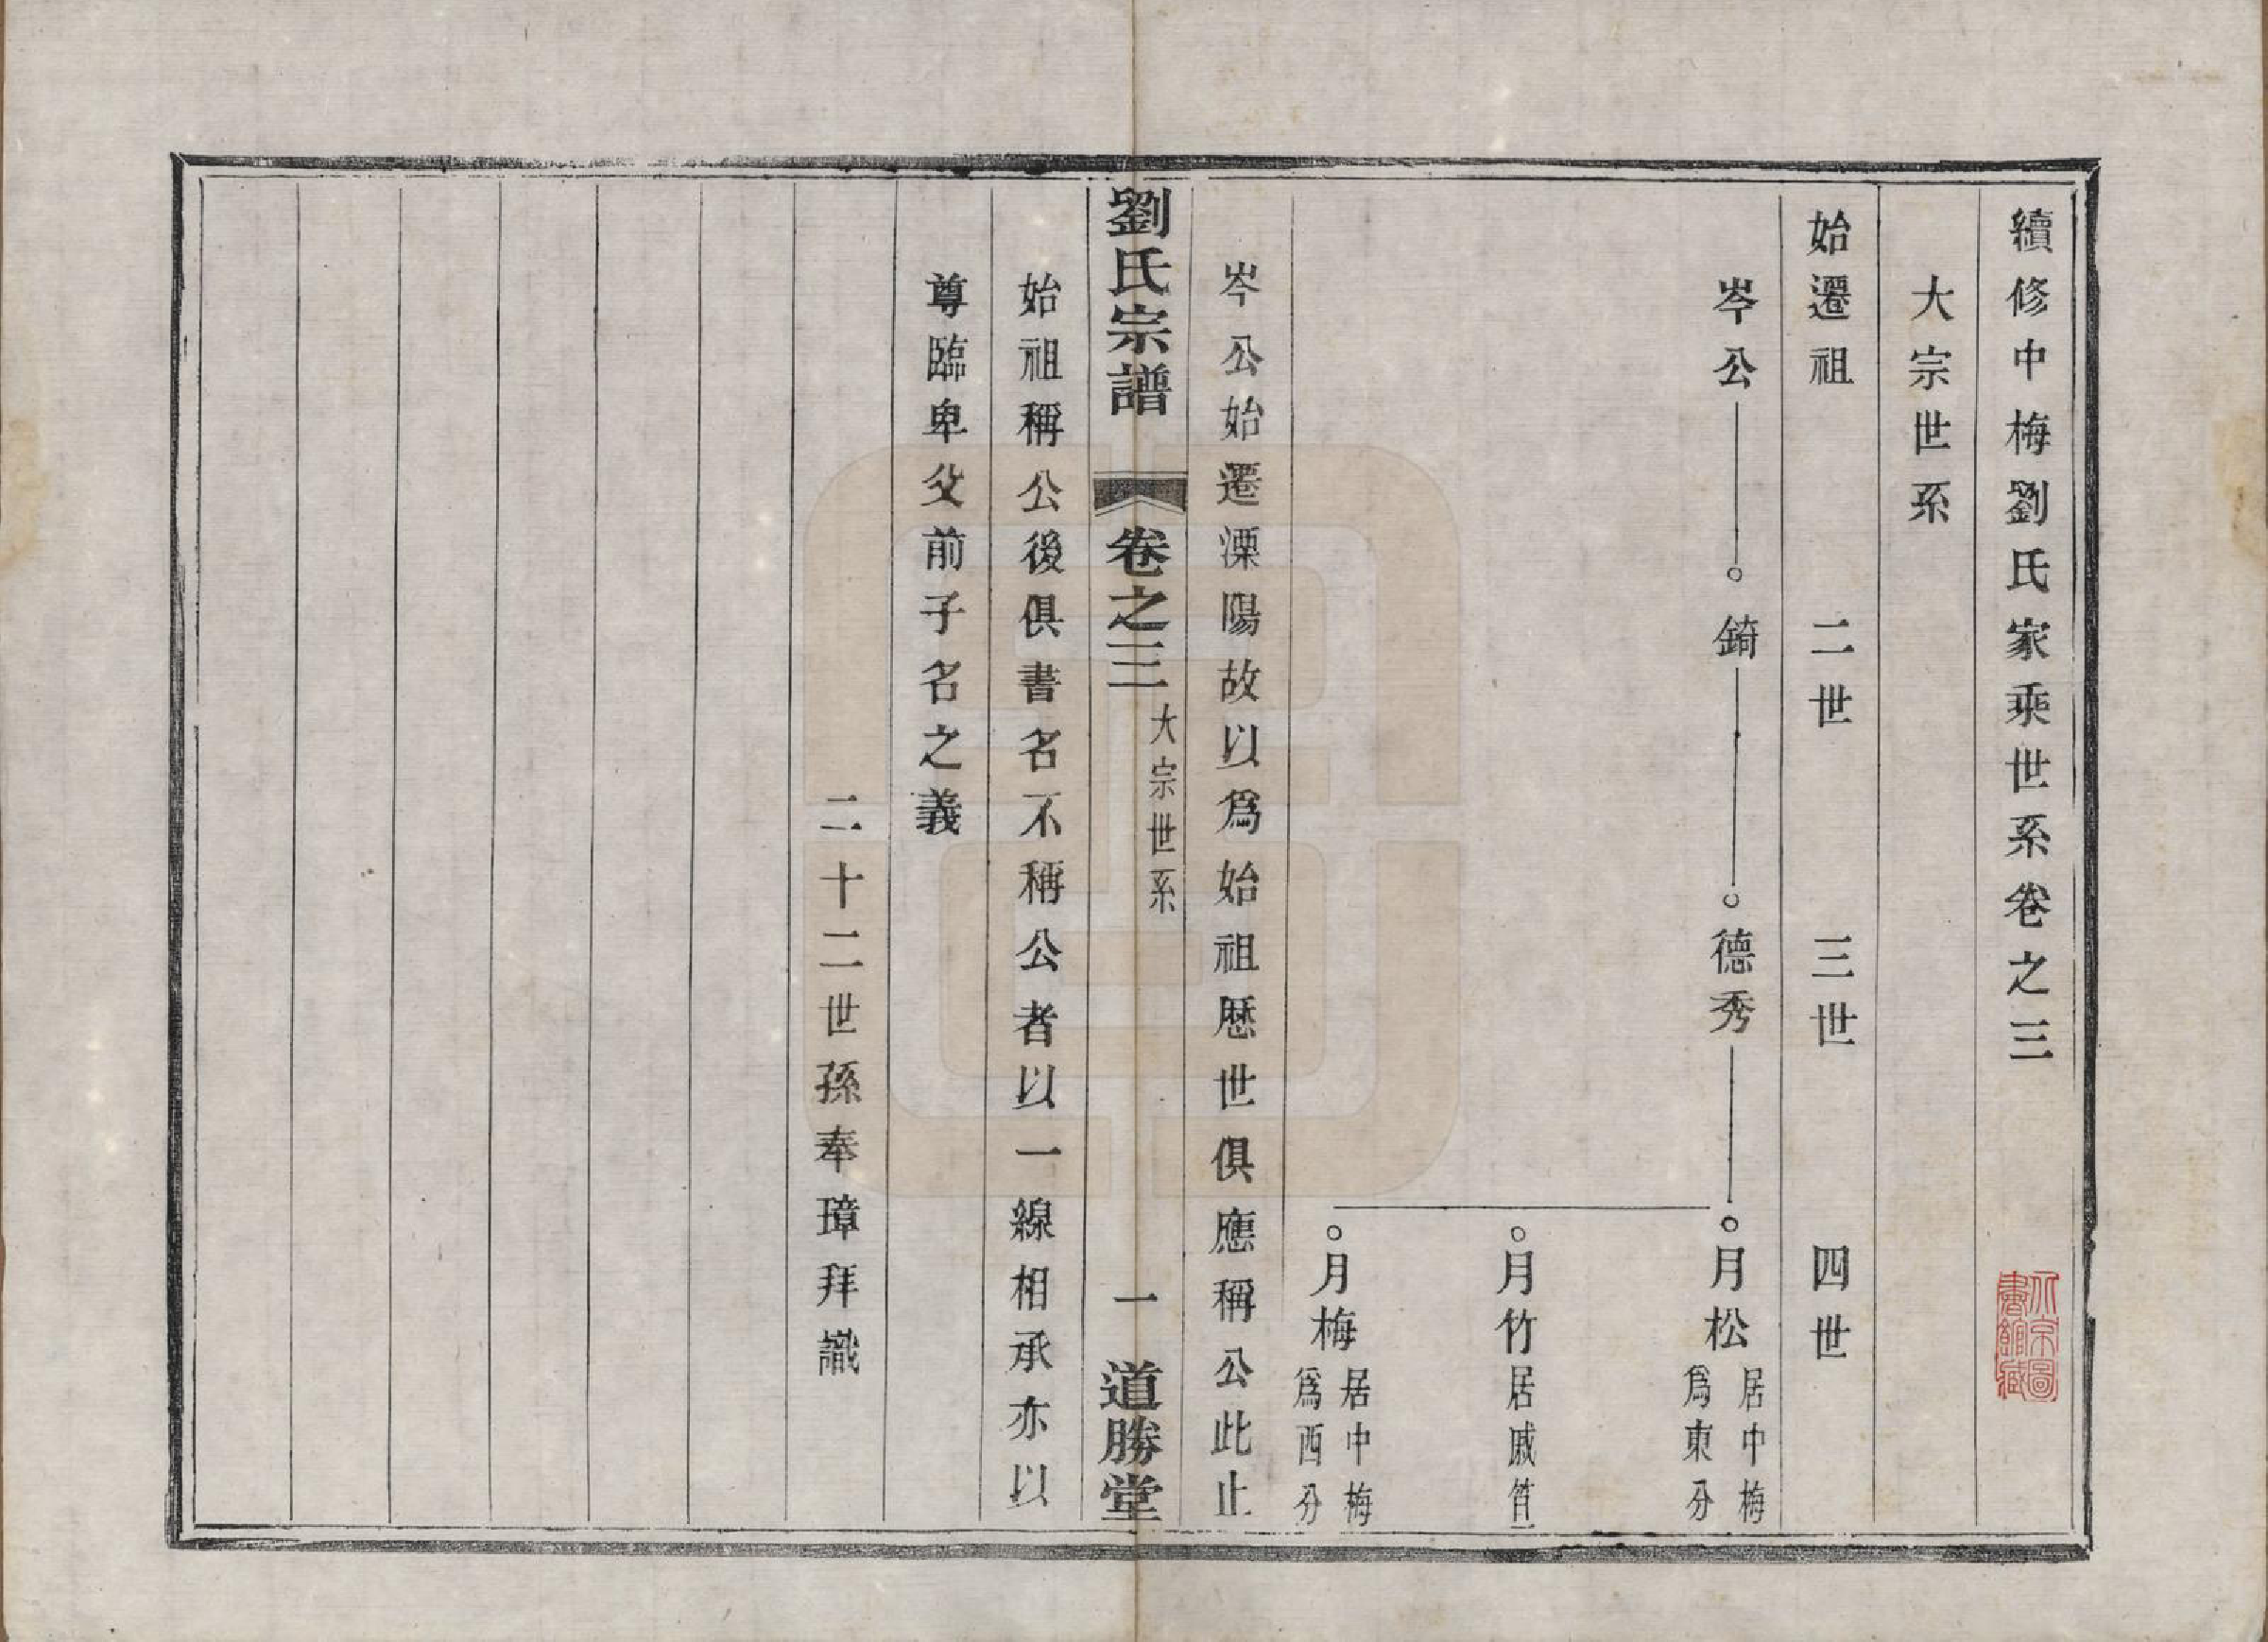 續修中梅劉氏家乘世系卷之三
大宗世系
始遷祖 二世 三世 四世
岑公 錡 德秀 月松 居中梅
爲東分
月竹 居戚笪
月梅 居中梅
爲西分
岑公始遷溧陽故以爲始祖歷世俱應稱公此止
劉氏宗譜 卷之三 大宗世系 一 道勝堂
始祖稱公後俱書名不稱公者以一線相承亦以
尊臨卑父前子名之義
二十二世孫奉璋拜識